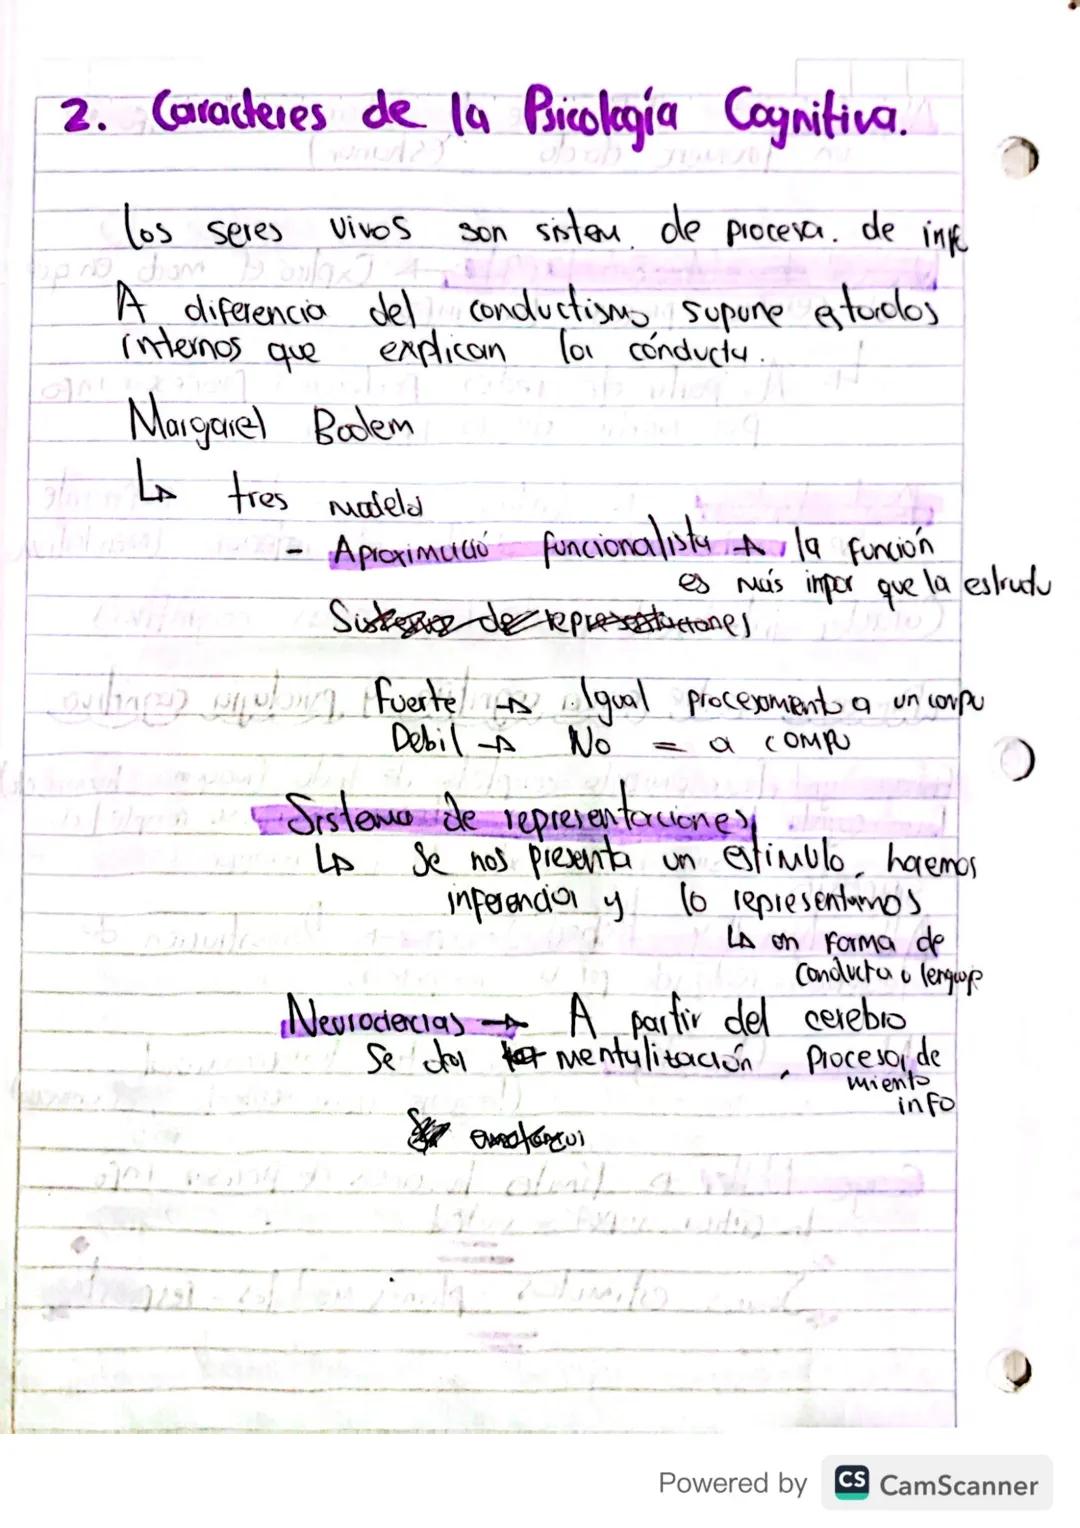 2. Caracteres de la Psicología Cognitiva.
los seres vivos son sistem. de procesa. de info
A diferencia del conductismo supone estados
internos que explican la conducta.
Margaret Bodem
↳ tres models
- Aproximació funcionalista → la función
es más impor que la estrutu
Sistemas de representaciones
Fuerte → Igual procesamiento a un compu
Debil → No = a compu
Sistema de representaciones
↳ Se nos presenta un estimulo, hacemos
inferencia y lo representamos
↳ en forma de
conducta o lenguaje
Neurociencias → A partir del cerebro
Se da mentalización, Procesa de
miento
info
Powered by CS CamScanner